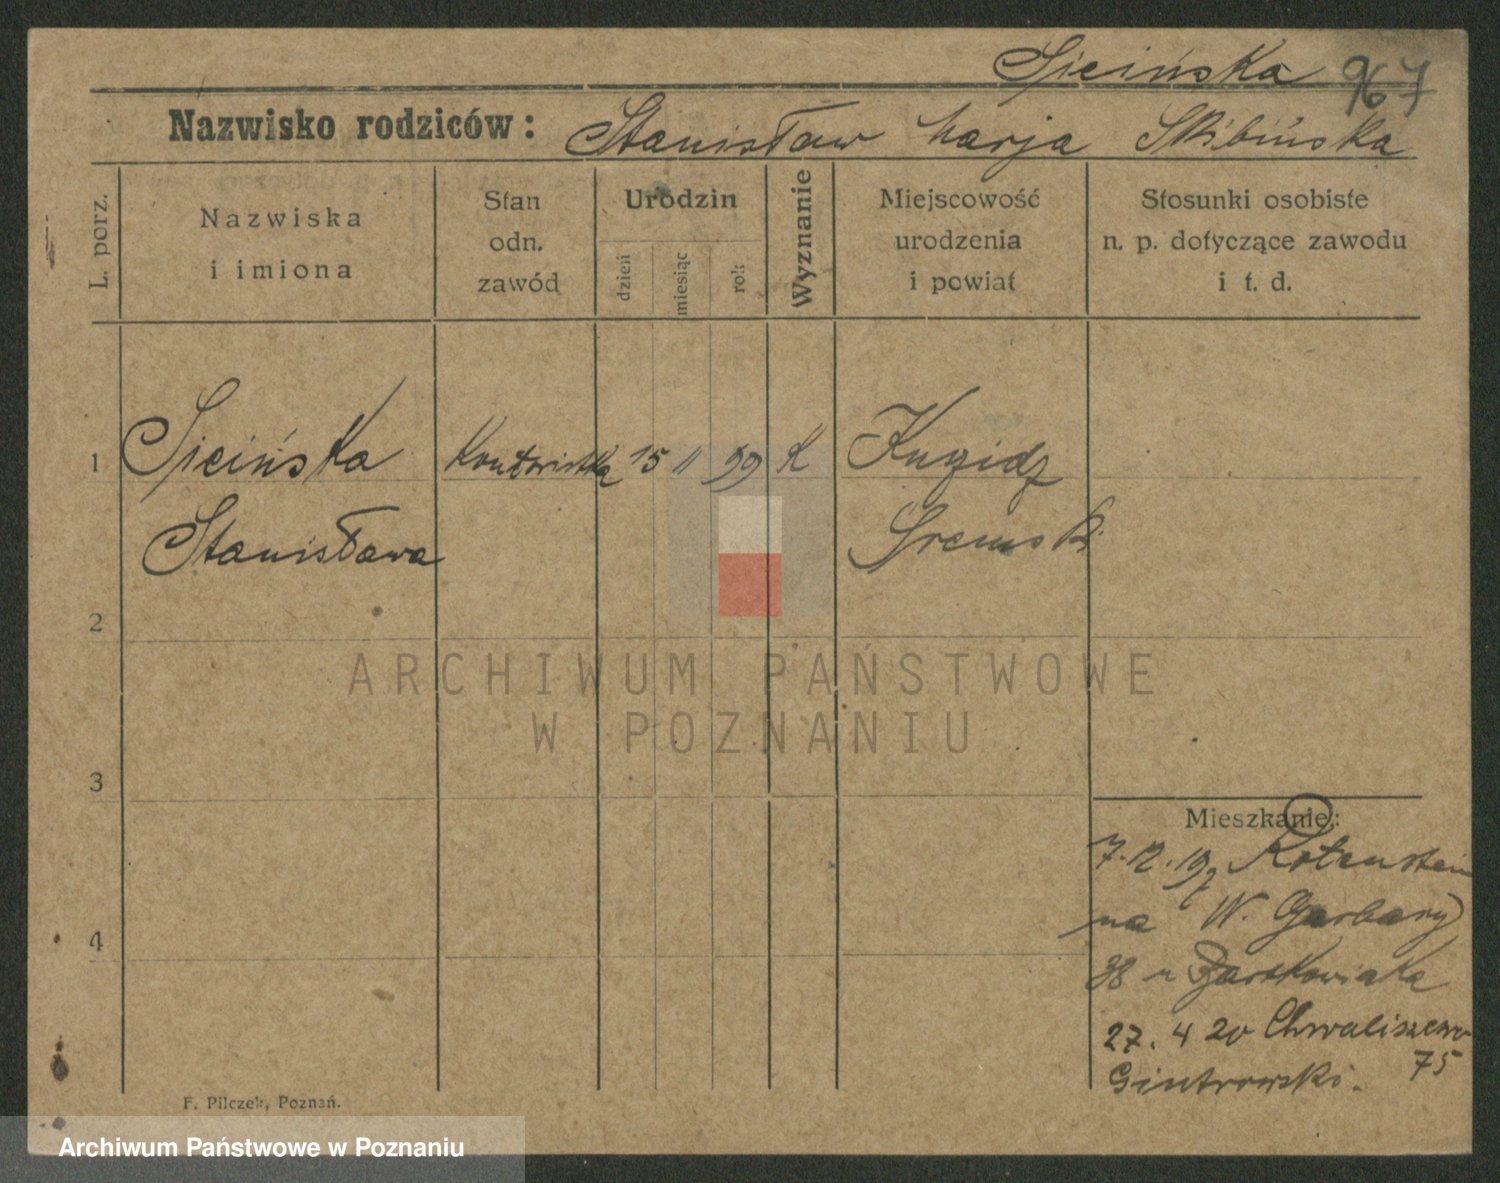 Sicińska 967
Nazwisko rodziców: Stanisław Marja Skibińska
L. porz.
Nazwiska
i imiona
Stan
odn.
zawód
Urodzin
dzień
miesiąc
rok
Wyznanie
Miejscowość
urodzenia
i powiat
Stosunki osobiste
n. p. dotyczące zawodu
i t. d.
1 Sicińska Kontoristka 15 11 99 K
Stanisława Śremski
2
3
4
Mieszkanie:
7.12.19
na W. Garbary
38 u Bartkowiaka
27. 4 20 Chwaliszewo
75
Gintrowski.
F. Pilczek, Poznań.
ARCHIWUM PAŃSTWOWE
W POZNANIU
Archiwum Państwowe w Poznaniu